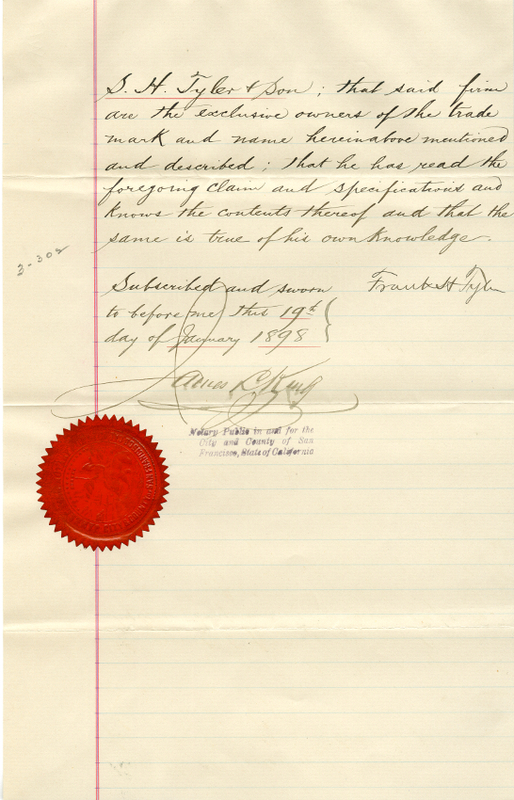 S. H. Tyler & Son; that said firm
are the exclusive owners of the trade
mark and name hereinabove mentioned
and described; that he has read the
foregoing claim and specifications and
knows the contents thereof and that the
same is true of his own knowledge.
3-302
Subscribed and sworn
Frank H Tyler
to before me this 19th
day of January 1898
James L King
Notary Public in and for the
City and County of San
Francisco, State of California